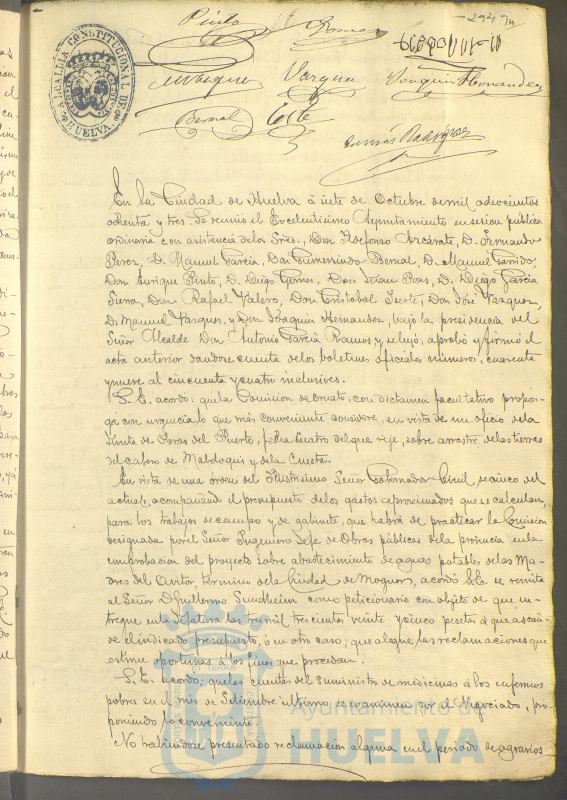 294
Pinto
Romero
ALCALDIA CONSTITUCIONAL DE HUELVA
Vazquez
Joaquin Hernandez
Bernal
Tomás Rodriguez
En la Ciudad de Huelva á siete de Octubre de mil ochocientos
ochenta y tres. Se reunió el Excelentísimo Ayuntamiento en sesion publica
ordinaria con asistencia de los Sres., Don Ildefonso Azcárate, D. Fernando
Perez, D. Manuel Garcia, Don Gumersindo Bernal, D. Manuel Garrido,
Don Enrique Pinto, D. Diego Gomez, Don Juan Pons, D. Diego Garcia
Sierra, Don Rafael Valero, Don Cristobal Don José Vazquez,
D. Manuel Vazquez, y Don Joaquin Hernandez, bajo la presidencia del
Señor Alcalde Don Antonio Garcia Ramos, y se leyó, aprobó y firmó el
acta anterior dandose cuenta de los boletines oficiales números, cuarenta
y nueve al cincuenta y cuatro inclusives.
S.E. acordó: que la Comision de Ornato, con dictamen facultativo propon-
ga con urgencia lo que más conveniente considere, en vista de un oficio de la
Junta de Obras del Puerto, fecha cuatro del que rije, sobre arrastre de las tierras
del cabezo de y de la Cuesta.
En vista de una órden del Ilustrisimo Señor Gobernador Civil, de cinco del
actual, acompañando el presupuesto de los gastos aproximados que se calculan,
para los trabajos de campo y de gabinete, que habrá de practicar la Comision
designada por el Señor Ingeniero Jefe de Obras públicas de la provincia en la
comprobacion del proyecto sobre abastecimiento de aguas potables de las Ma-
dres del Avitor termino de la Ciudad de Moguer, acordó S.E. se remita
al Señor D. Guillermo Sundheim como peticionario con objeto de que en-
tregue en la Jefatura las tres mil trescientas veinte y cinco pesetas á que ascien-
de el indicado presupuesto, ó en otro caso, que alegue las reclamaciones que
estime oportunas á los fines que procedan.
S.E. acordó: que las cuentas del suministro de medicinas á los enfermos
pobres en el mes de Setiembre ultimo se examinen por el Negociado, pro-
poniendo lo conveniente.
No habiendose presentado reclamacion alguna en el periodo de agravios
Ayuntamiento de
HUELVA